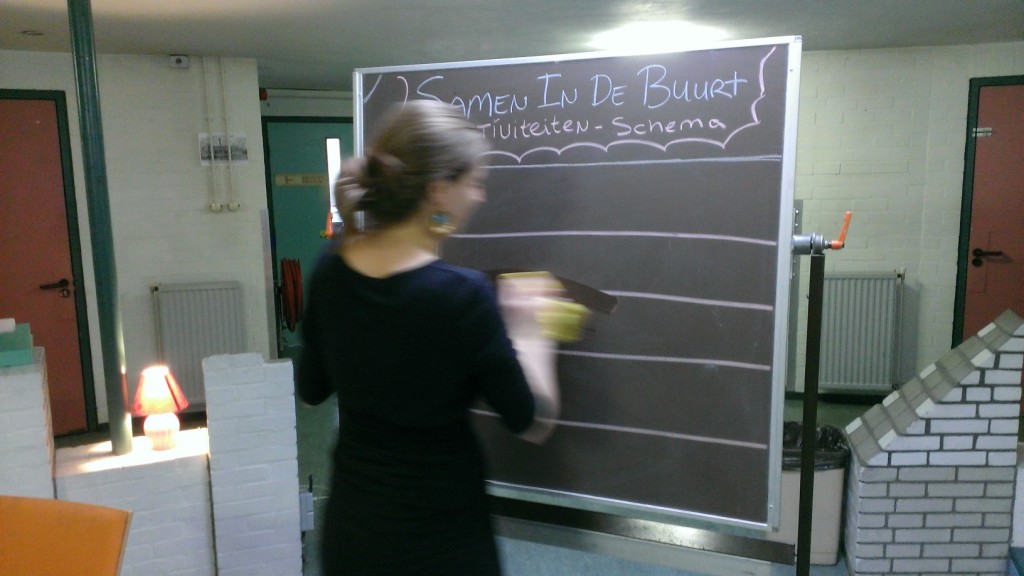 Samen In De Buurt
tiviteiten - Schema